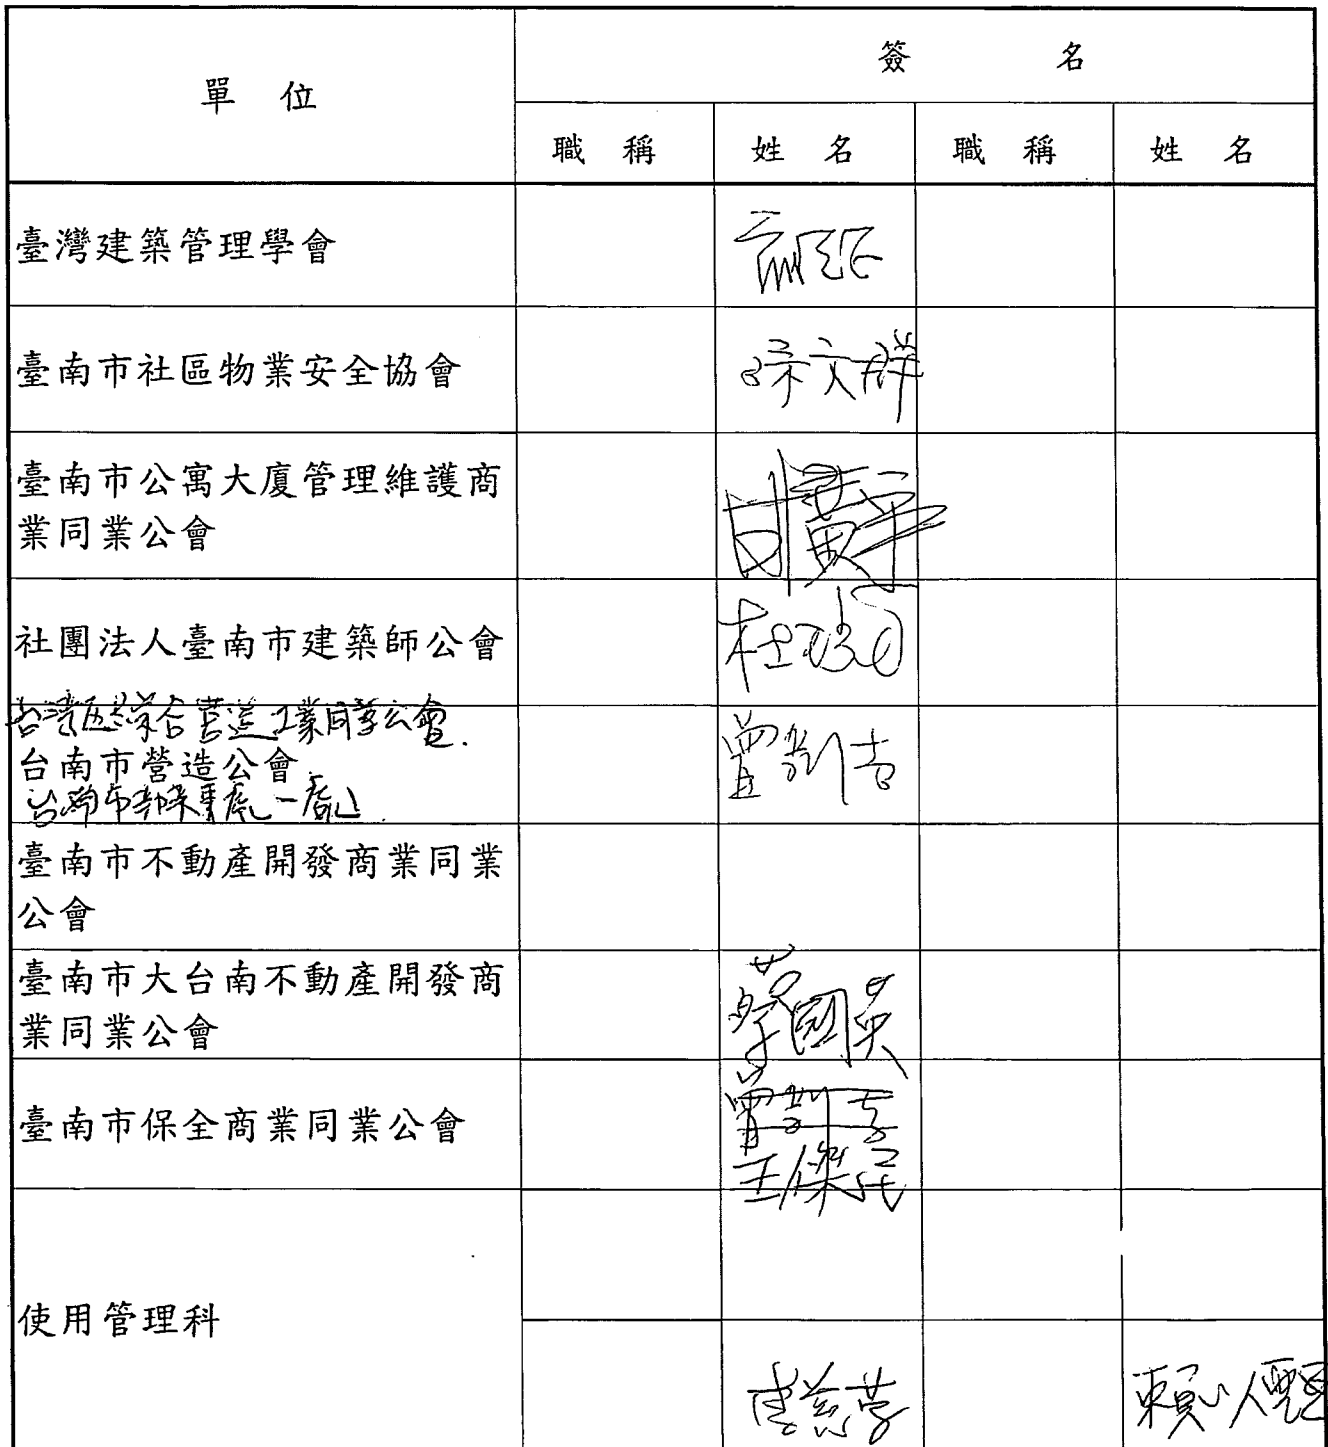 單 位
簽 名
職 稱 姓 名 職 稱 姓 名
臺灣建築管理學會
臺南市社區物業安全協會
文群
臺南市公寓大廈管理維護商
業同業公會
社團法人臺南市建築師公會
台灣區綜合營造工業同業公會.
台南市營造公會
台南市辦事處
臺南市不動產開發商業同業
公會
臺南市大台南不動產開發商
業同業公會
蔡國英
臺南市保全商業同業公會
王傑民
使用管理科